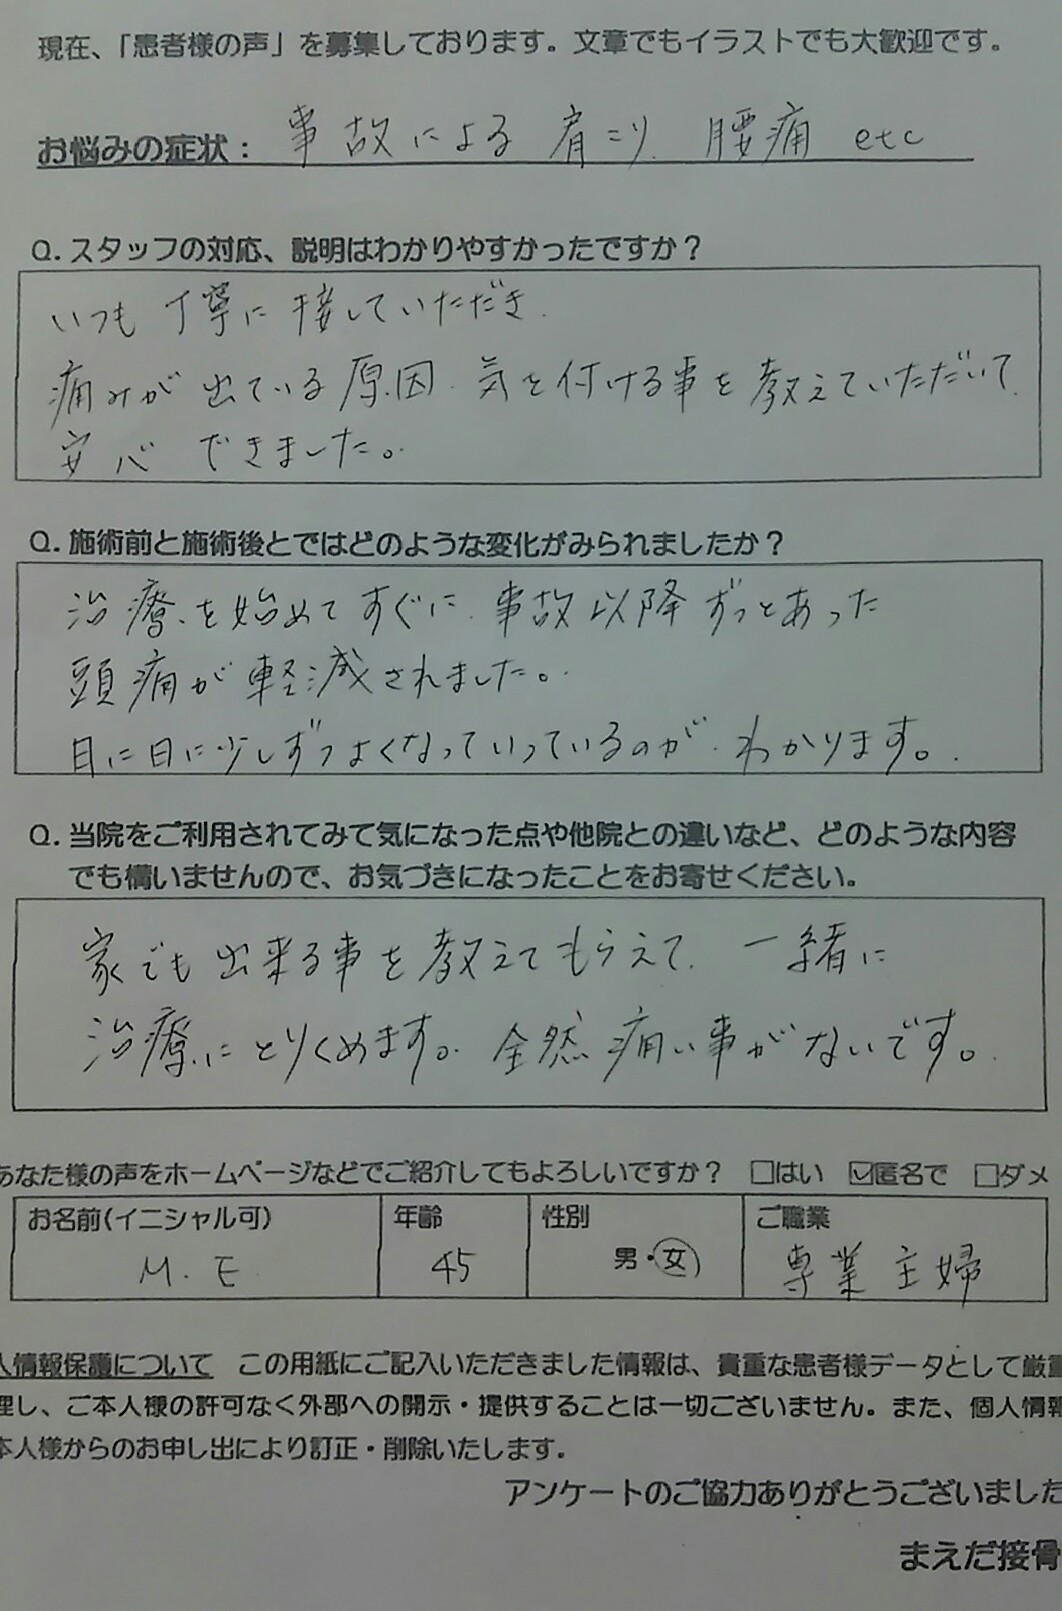 現在、「患者様の声」を募集しております。文章でもイラストでも大歓迎です。
お悩みの症状： 事故による 肩こり、腰痛 etc
Q. スタッフの対応、説明はわかりやすかったですか？
いつも 丁寧に 接していただき、
痛みが 出ている 原因、気を付ける事を 教えていただいて
安心 できました。
Q. 施術前と施術後とではどのような変化がみられましたか？
治療を始めてすぐに、事故以降ずっとあった
頭痛が 軽減されました。
日に日に少しずつよくなっていっているのが、わかります。
Q. 当院をご利用されてみて気になった点や他院との違いなど、どのような内容
でも構いませんので、お気づきになったことをお寄せください。
家でも出来る事を教えてもらえて、一緒に
治療にとりくめます。全然痛い事がないです。
あなた様の声をホームページなどでご紹介してもよろしいですか？ □はい ☑匿名で □ダメ
お名前(イニシャル可) 年齢 性別 ご職業
M.E 45 男・女 専業主婦
人情報保護について この用紙にご記入いただきました情報は、貴重な患者様データとして厳重
理し、ご本人様の許可なく外部への開示・提供することは一切ございません。また、個人情報
本人様からのお申し出により訂正・削除いたします。
アンケートのご協力ありがとうございました
まえだ接骨